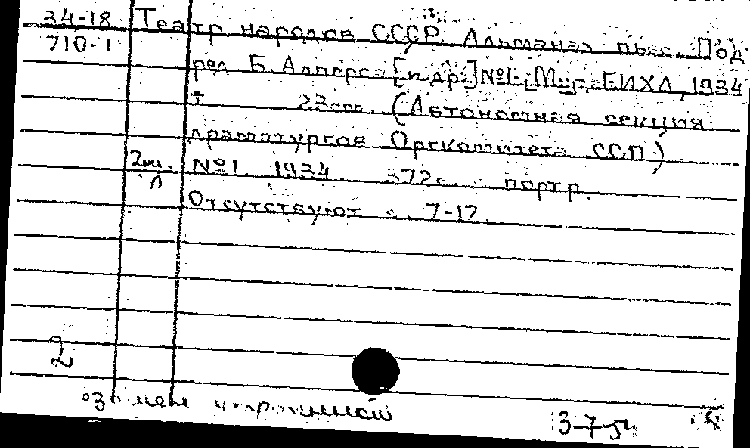 34-18 Театр народов СССР. Альманах пьес. Под
710-1 ред. Б. Алперс [и др.] №1. М., ГИХЛ, 1934
т 22 cm. (Автономная секция
драматургов Оргкомитета ССП)
2 №1 1934. 372 с. портр.
Отсутствуют с. 7-12.
2
3-7-54